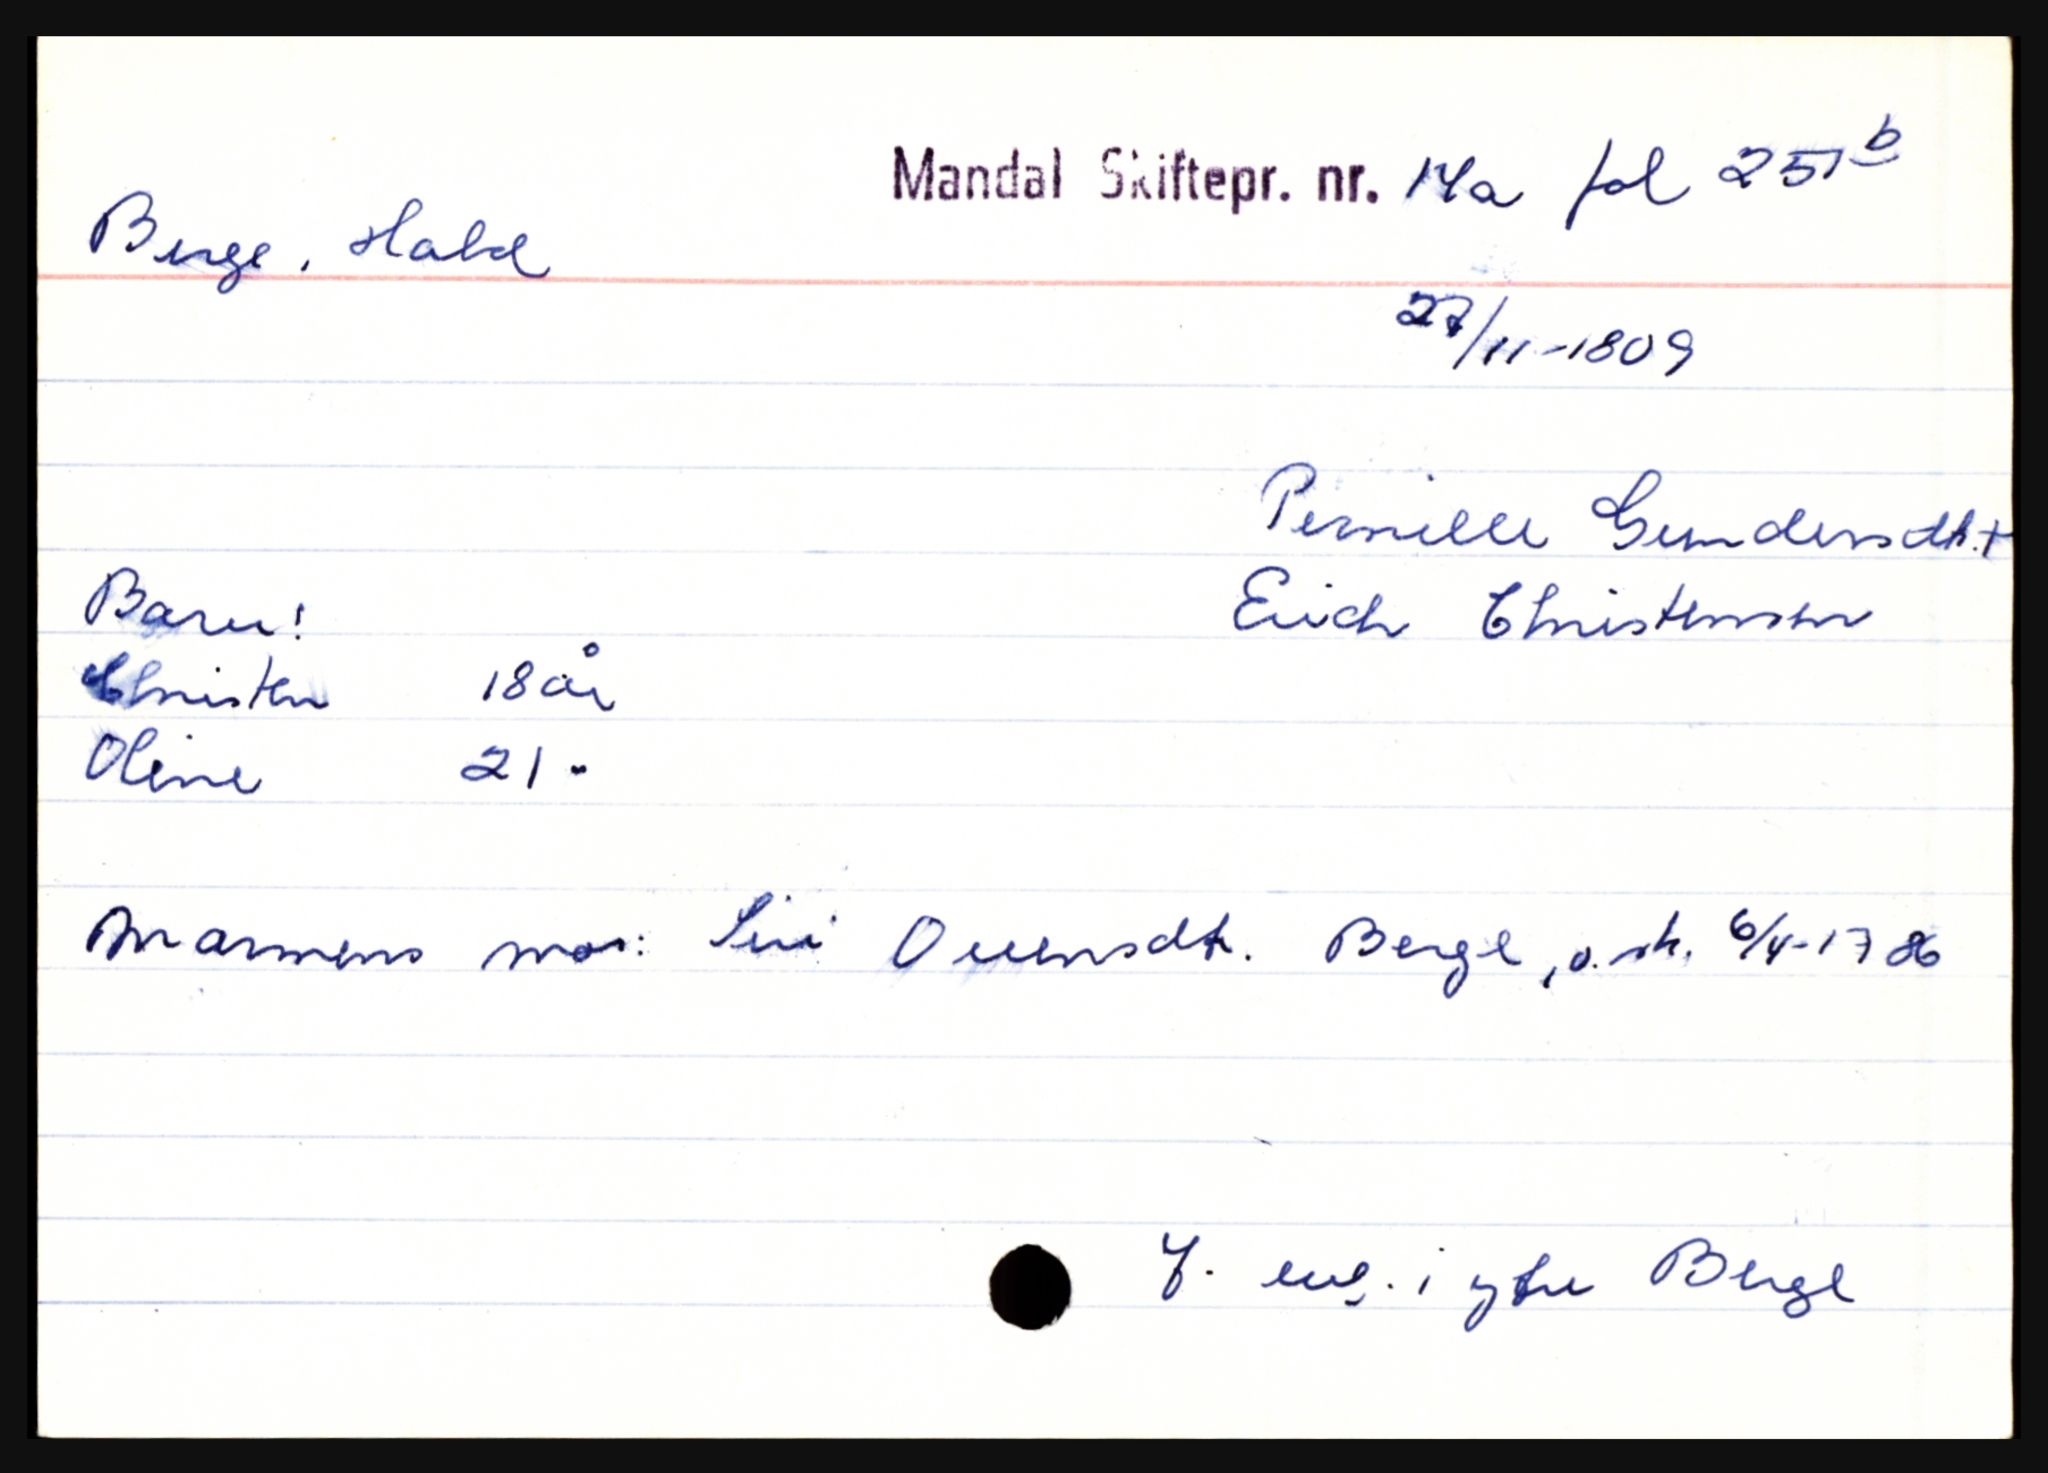 Mandal Skiftepr. nr. 14a fol 251b
Berge, Hald
27/11-1809
Pernille Gundersdt. +
Erich Christensen
Barn:
Christen 18 år
Oline 21 "
Mannens mor: Siri Ouensdt. Berge, o. sk. 6/4-1786
J. eng. i ytre Berge